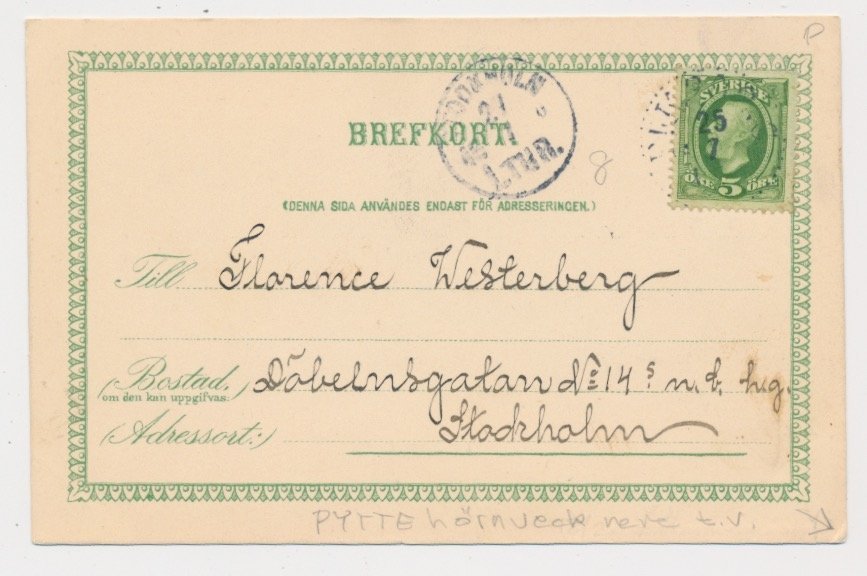 P
SVERIGE
25
7
ONE 5 ÖRE
STOCKHOLM
27
7
1.TUR.
BREFKORT.
8
(DENNA SIDA ANVÄNDES ENDAST FÖR ADRESSERINGEN.)
Till Florence Westerberg
(Bostad, Döbelnsgatan No 14 s n.b. hug.
om den kan uppgifvas:
(Adressort:) Stockholm
PYTTE hörnveck nere t.v.